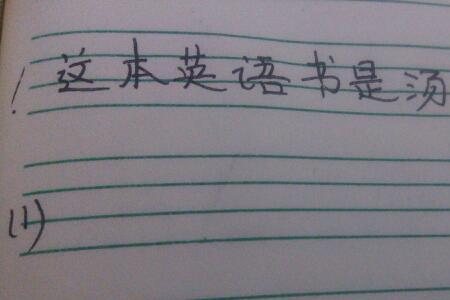 这本英语书是汤
(1)